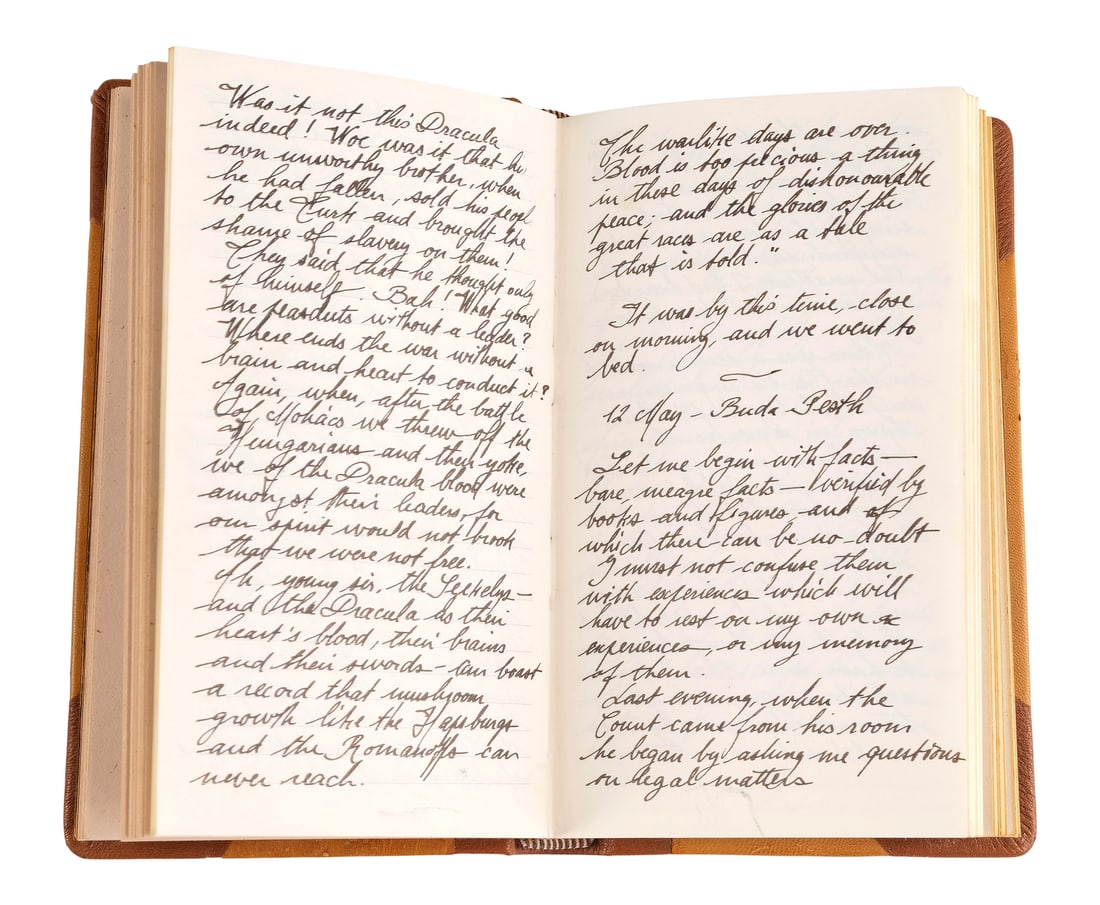 Was it not this Dracula
indeed! Woe was it that his
own unworthy brother, when
he had fallen, sold his peopl
to the Turk and brought the
shame of slavery on them!
They said that he thought only
of himself. Bah! What good
are peasduts without a leader?
Where ends the war without a
brain and heart to conduct it?
Again, when, after the battle
of Mohács we threw off the
Hungarians and their yoke,
we of the Dracula blood were
amongst their leaders, for
our spirit would not brook
that we were not free.
Ah, young sir, the Szekelys—
and the Dracula as their
heart's blood, their brains
and their swords—can boast
a record that mushroom
growth like the Hapsburgs
and the Romanoffs can
never reach.
The warlike days are over.
Blood is too precious a thing
in these days of dishonourable
peace; and the glories of the
great races are as a tale
that is told."
It was by this time close
on morning, and we went to
bed.
12 May - Buda Pesth
Let me begin with facts—
bare, meagre facts—verified by
books and figures, and of
which there can be no doubt
I must not confuse them
with experiences which will
have to rest on my own
experiences, or my memory
of them.
Last evening, when the
Count came from his room
he began by asking me questions
on legal matters